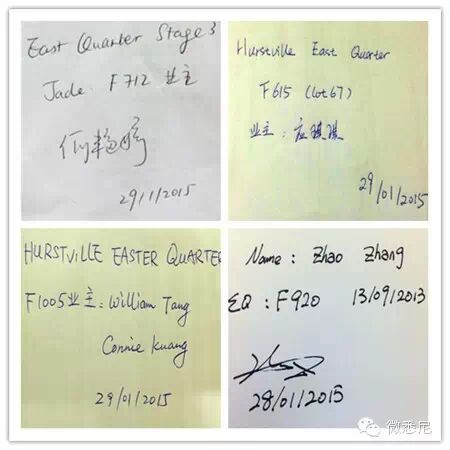 East Quarter Stage 3
Jade. F712 业主
29/1/2015
Hurstville East Quarter
F615 (Lot 67)
业主:
29/01/2015
HURSTVILLE EASTER QUARTER
F1005业主: William Tang
Connie Kuang
29/01/2015
Name: Zhao Zhang
EQ: F920 13/09/2013
28/01/2015
微悉尼